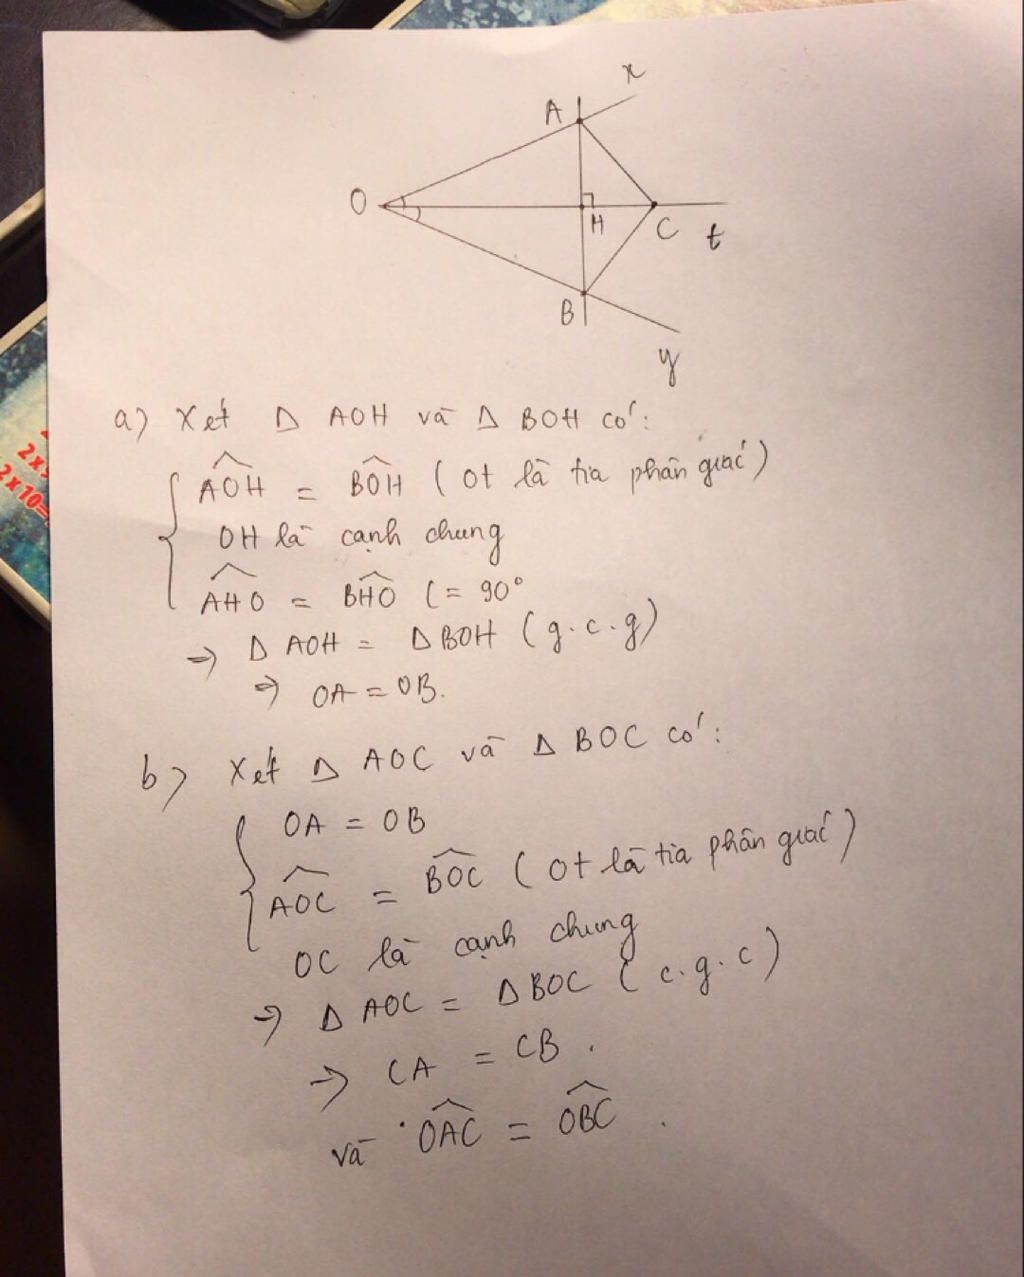 x
A
O
H
C
t
B
y
a) Xét Δ AOH và Δ BOH có:
AOH = BOH (Ot là tia phân giác)
OH là cạnh chung
AHO = BHO (= 90°
⇒ Δ AOH = Δ BOH (g.c.g)
⇒ OA = OB.
b) Xét Δ AOC và Δ BOC có:
OA = OB
AOC = BOC (Ot là tia phân giác)
OC là cạnh chung
⇒ Δ AOC = Δ BOC (c.g.c)
⇒ CA = CB.
và OAC = OBC.
2x10=